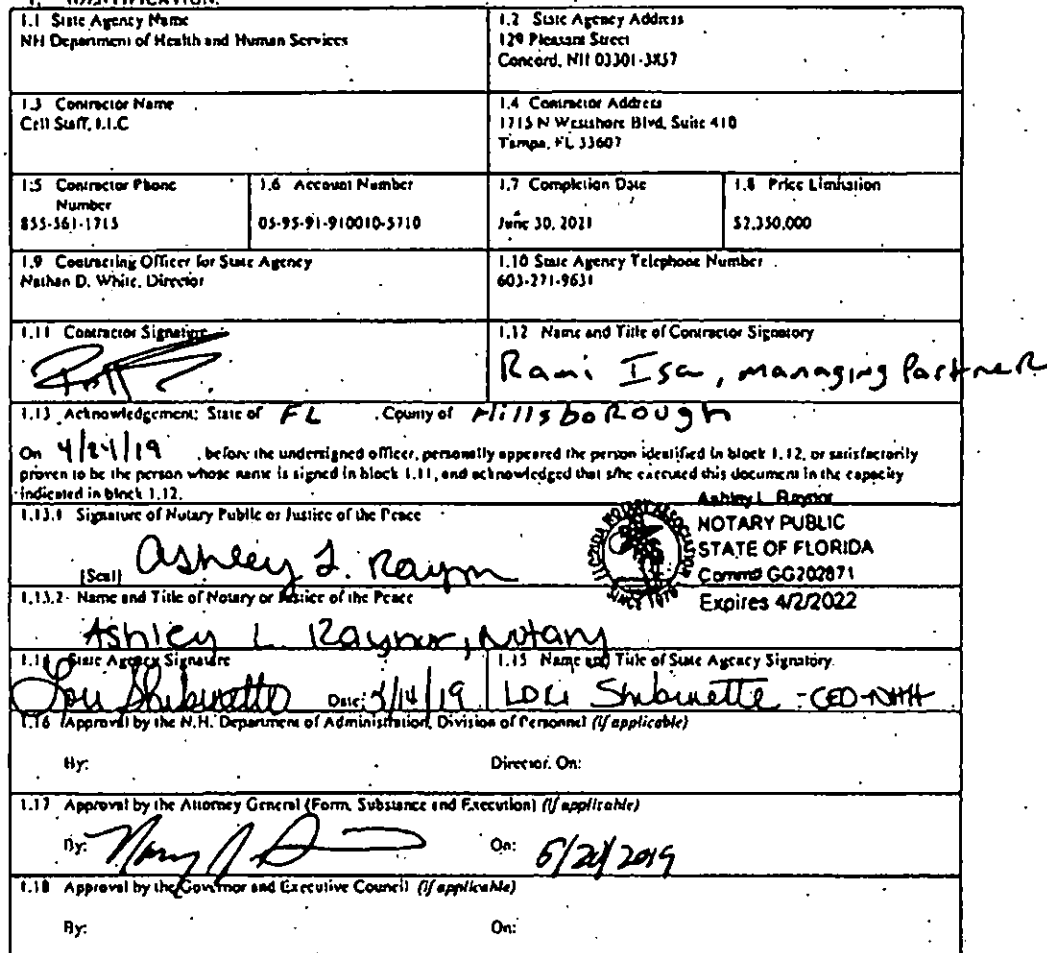 1. IDENTIFICATION.
1.1 State Agency Name
NH Department of Health and Human Services
1.2 State Agency Address
129 Pleasant Street
Concord, NH 03301-3857
1.3 Contractor Name
Cell Staff, LLC
1.4 Contractor Address
1715 N Westshore Blvd, Suite 410
Tampa, FL 33607
1.5 Contractor Phone
Number
855-561-1715
1.6 Account Number
05-95-91-910010-5710
1.7 Completion Date
June 30, 2021
1.8 Price Limitation
$2,350,000
1.9 Contracting Officer for State Agency
Nathan D. White, Director
1.10 State Agency Telephone Number
603-271-9631
1.11 Contractor Signature
1.12 Name and Title of Contractor Signatory
Rami Isa, managing Partner
1.13 Acknowledgement: State of FL , County of Hillsborough
On 4/24/19 , before the undersigned officer, personally appeared the person identified in block 1.12, or satisfactorily
proven to be the person whose name is signed in block 1.11, and acknowledged that s/he executed this document in the capacity
indicated in block 1.12.
1.13.1 Signature of Notary Public or Justice of the Peace
[Seal] Ashley L. Raynor
Ashley L. Raynor
NOTARY PUBLIC
STATE OF FLORIDA
Comm# GG202871
Expires 4/2/2022
FLORIDA NOTARY ASSOCIATION
SINCE 1978
1.13.2 Name and Title of Notary or Justice of the Peace
Ashley L Raynor, Notary
1.14 State Agency Signature
Lori Shibinette Date: 5/14/19
1.15 Name and Title of State Agency Signatory
Lori Shibinette - CEO-NHH
1.16 Approval by the N.H. Department of Administration, Division of Personnel (if applicable)
By: Director, On:
1.17 Approval by the Attorney General (Form, Substance and Execution) (if applicable)
By: On: 5/21/2019
1.18 Approval by the Governor and Executive Council (if applicable)
By: On: